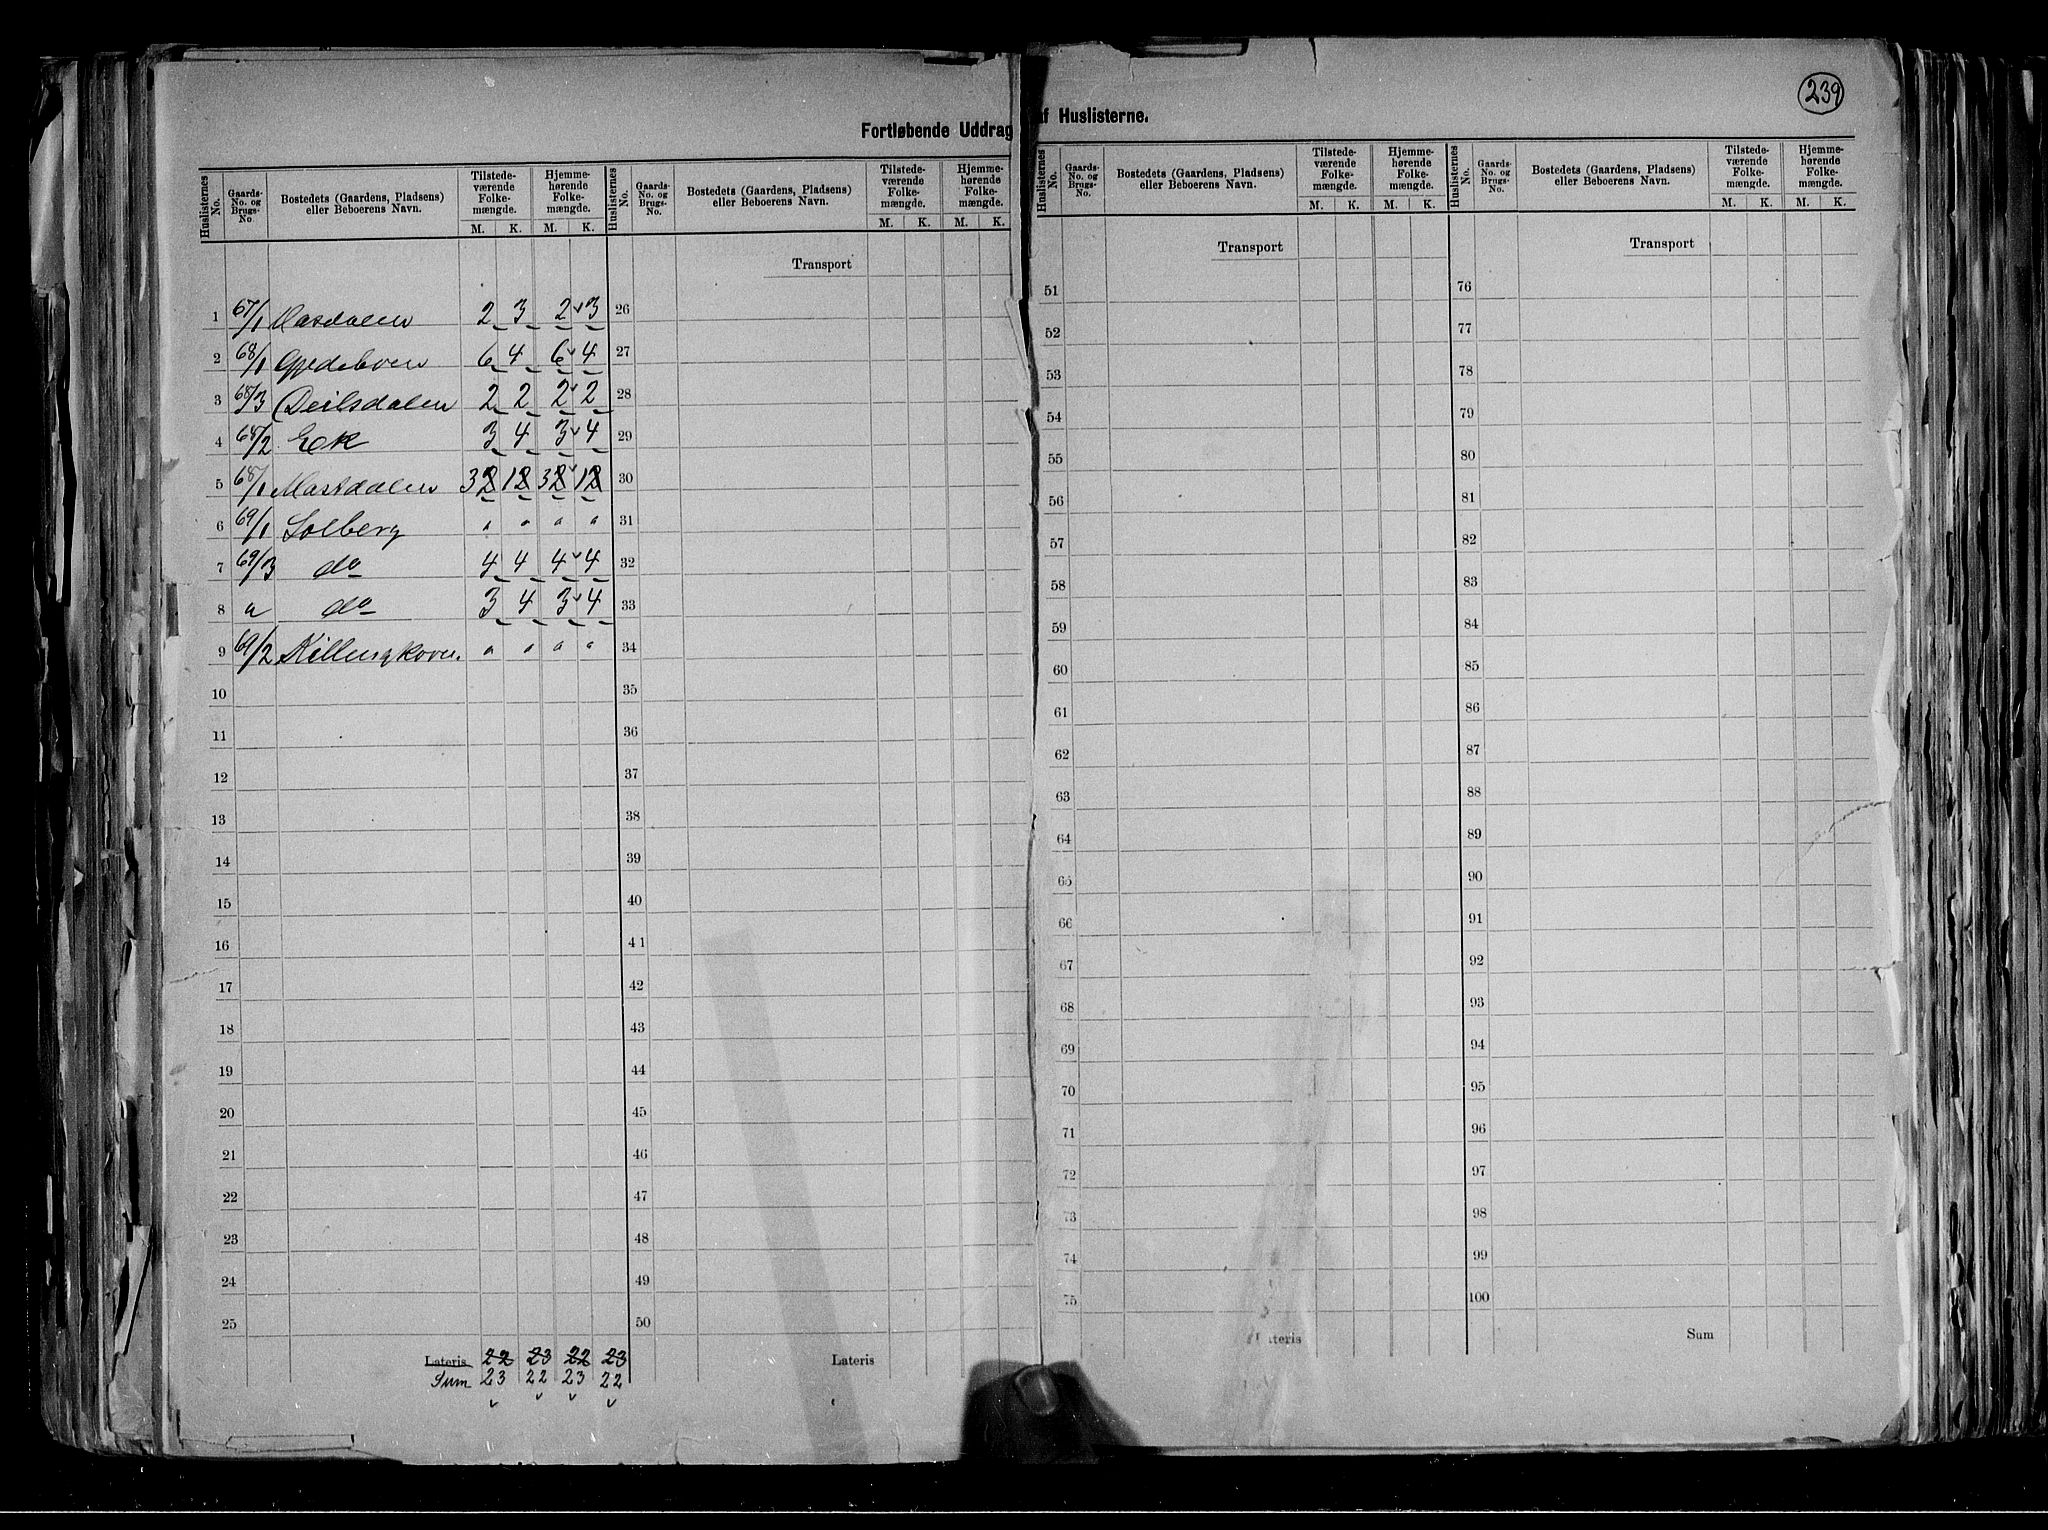 239
Fortløbende Uddrag af Huslisterne.
Huslisternes No. Gaards-No. og Brugs-No Bostedets (Gaardens, Pladsens) eller Beboerens Navn. Tilstedeværende Folkemængde. M. K. Hjemmehørende Folkemængde. M. K.
Huslisternes No. Gaards-No. og Brugs-No. Bostedets (Gaardens, Pladsens) eller Beboerens Navn. Tilstedeværende Folkemængde. M. K. Hjemmehørende Folkemængde. M. K.
Huslisternes No. Gaards-No. og Brugs-No. Bostedets (Gaardens, Pladsens) eller Beboerens Navn. Tilstedeværende Folkemængde. M. K. Hjemmehørende Folkemængde. M. K.
Huslisternes No. Gaards-No. og Brugs-No. Bostedets (Gaardens, Pladsens) eller Beboerens Navn. Tilstedeværende Folkemængde. M. K. Hjemmehørende Folkemængde. M. K.
1 67/1 2 3 2 3
2 68/1 Gjedeboen 6 4 6 4
3 68/3 Deilsdalen 2 2 2 2
4 68/2 Eek 3 4 3 4
5 68/1 Mastdalen 3 1 3 1
6 69/1 Solberg " " " "
7 69/3 do 4 4 4 4
8 " do 3 4 3 4
9 69/2 " " " "
10
11
12
13
14
15
16
17
18
19
20
21
22
23
24
25
Lateris 22 23 22 23
Sum 23 22 23 22
Transport
26
27
28
29
30
31
32
33
34
35
36
37
38
39
40
41
42
43
44
45
46
47
48
49
50
Lateris
Transport
51
52
53
54
55
56
57
58
59
60
61
62
63
64
65
66
67
68
69
70
71
72
73
74
75
Lateris
Transport
76
77
78
79
80
81
82
83
84
85
86
87
88
89
90
91
92
93
94
95
96
97
98
99
100
Sum